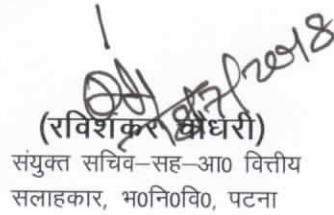 (रविशंकर चौधरी)
संयुक्त सचिव–सह–आ0 वित्तीय
सलाहकार, भ0नि0वि0, पटना